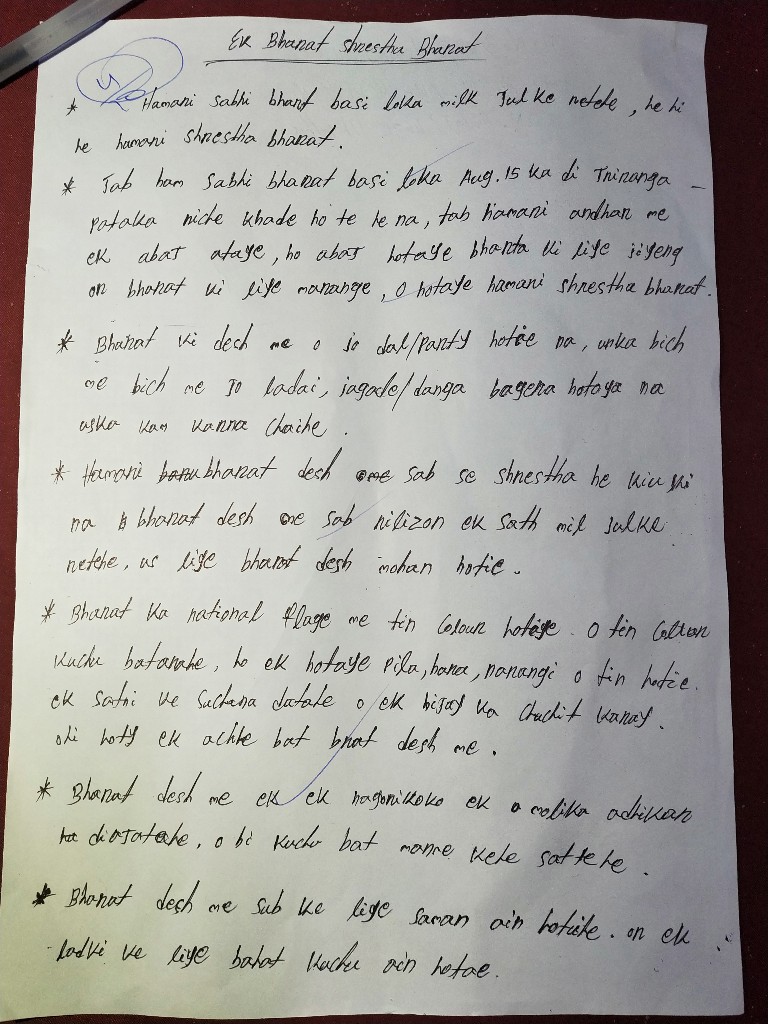 Ek Bharat shrestha Bharat
* Hamari sabhi bhart basi loka milk Jul ke rehehe, he hi
he hamari shrestha bharat.
* Jab ham sabhi bharat basi loka Aug. 15 ka di Triranga
pataka niche khade ho te he na, tab hamari andhar me
ek abaJ ataye, ho abaJ hotaye bharta ki liye jiyeng
or bharat ki liye marange, o hotaye hamari shrestha bharat.
* Bharat ki desh me o jo dal/party hotie na, unka bich
me bich me Jo ladai, jagade/danga bagera hotaya na
uska kam karna chaihe.
* Hamari bharat desh me sab se shrestha he kiu ki
na bharat desh me sab rilizon ek sath mil Julke
rehehe, us liye bharat desh mohan hotie.
* Bharat ka national flage me tin colour hotaye. O tin colour
kuchu batarahe, ho ek hotaye pila, hara, narangi o tin hotie.
ek satri ke suchana datahe o ek bijay ka charit karay.
ohi hoty ek achhe bat brat desh me.
* Bharat desh me ek ek nagorikoko ek molika adhikar
diaJatahe, o bi kuchu bat manne kehe sattehe.
* Bharat desh me sub ke liye saman ain hotiehe. or ek
ladki ke liye bahat kuchu ain hotae.